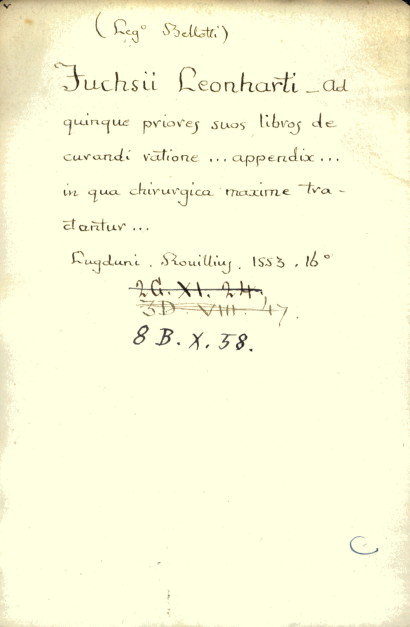 (Leg° Bellotti)
Fuchsii Leonharti _ ad
quinque priores suos libros de
curandi ratione ... appendix ...
in qua chirurgica maxime tra-
ctantur ...
Lugduni . Rouillius . 1553 . 16°
2G. XI. 24,
3D. VIII. 47.
8 B. X. 38.
C